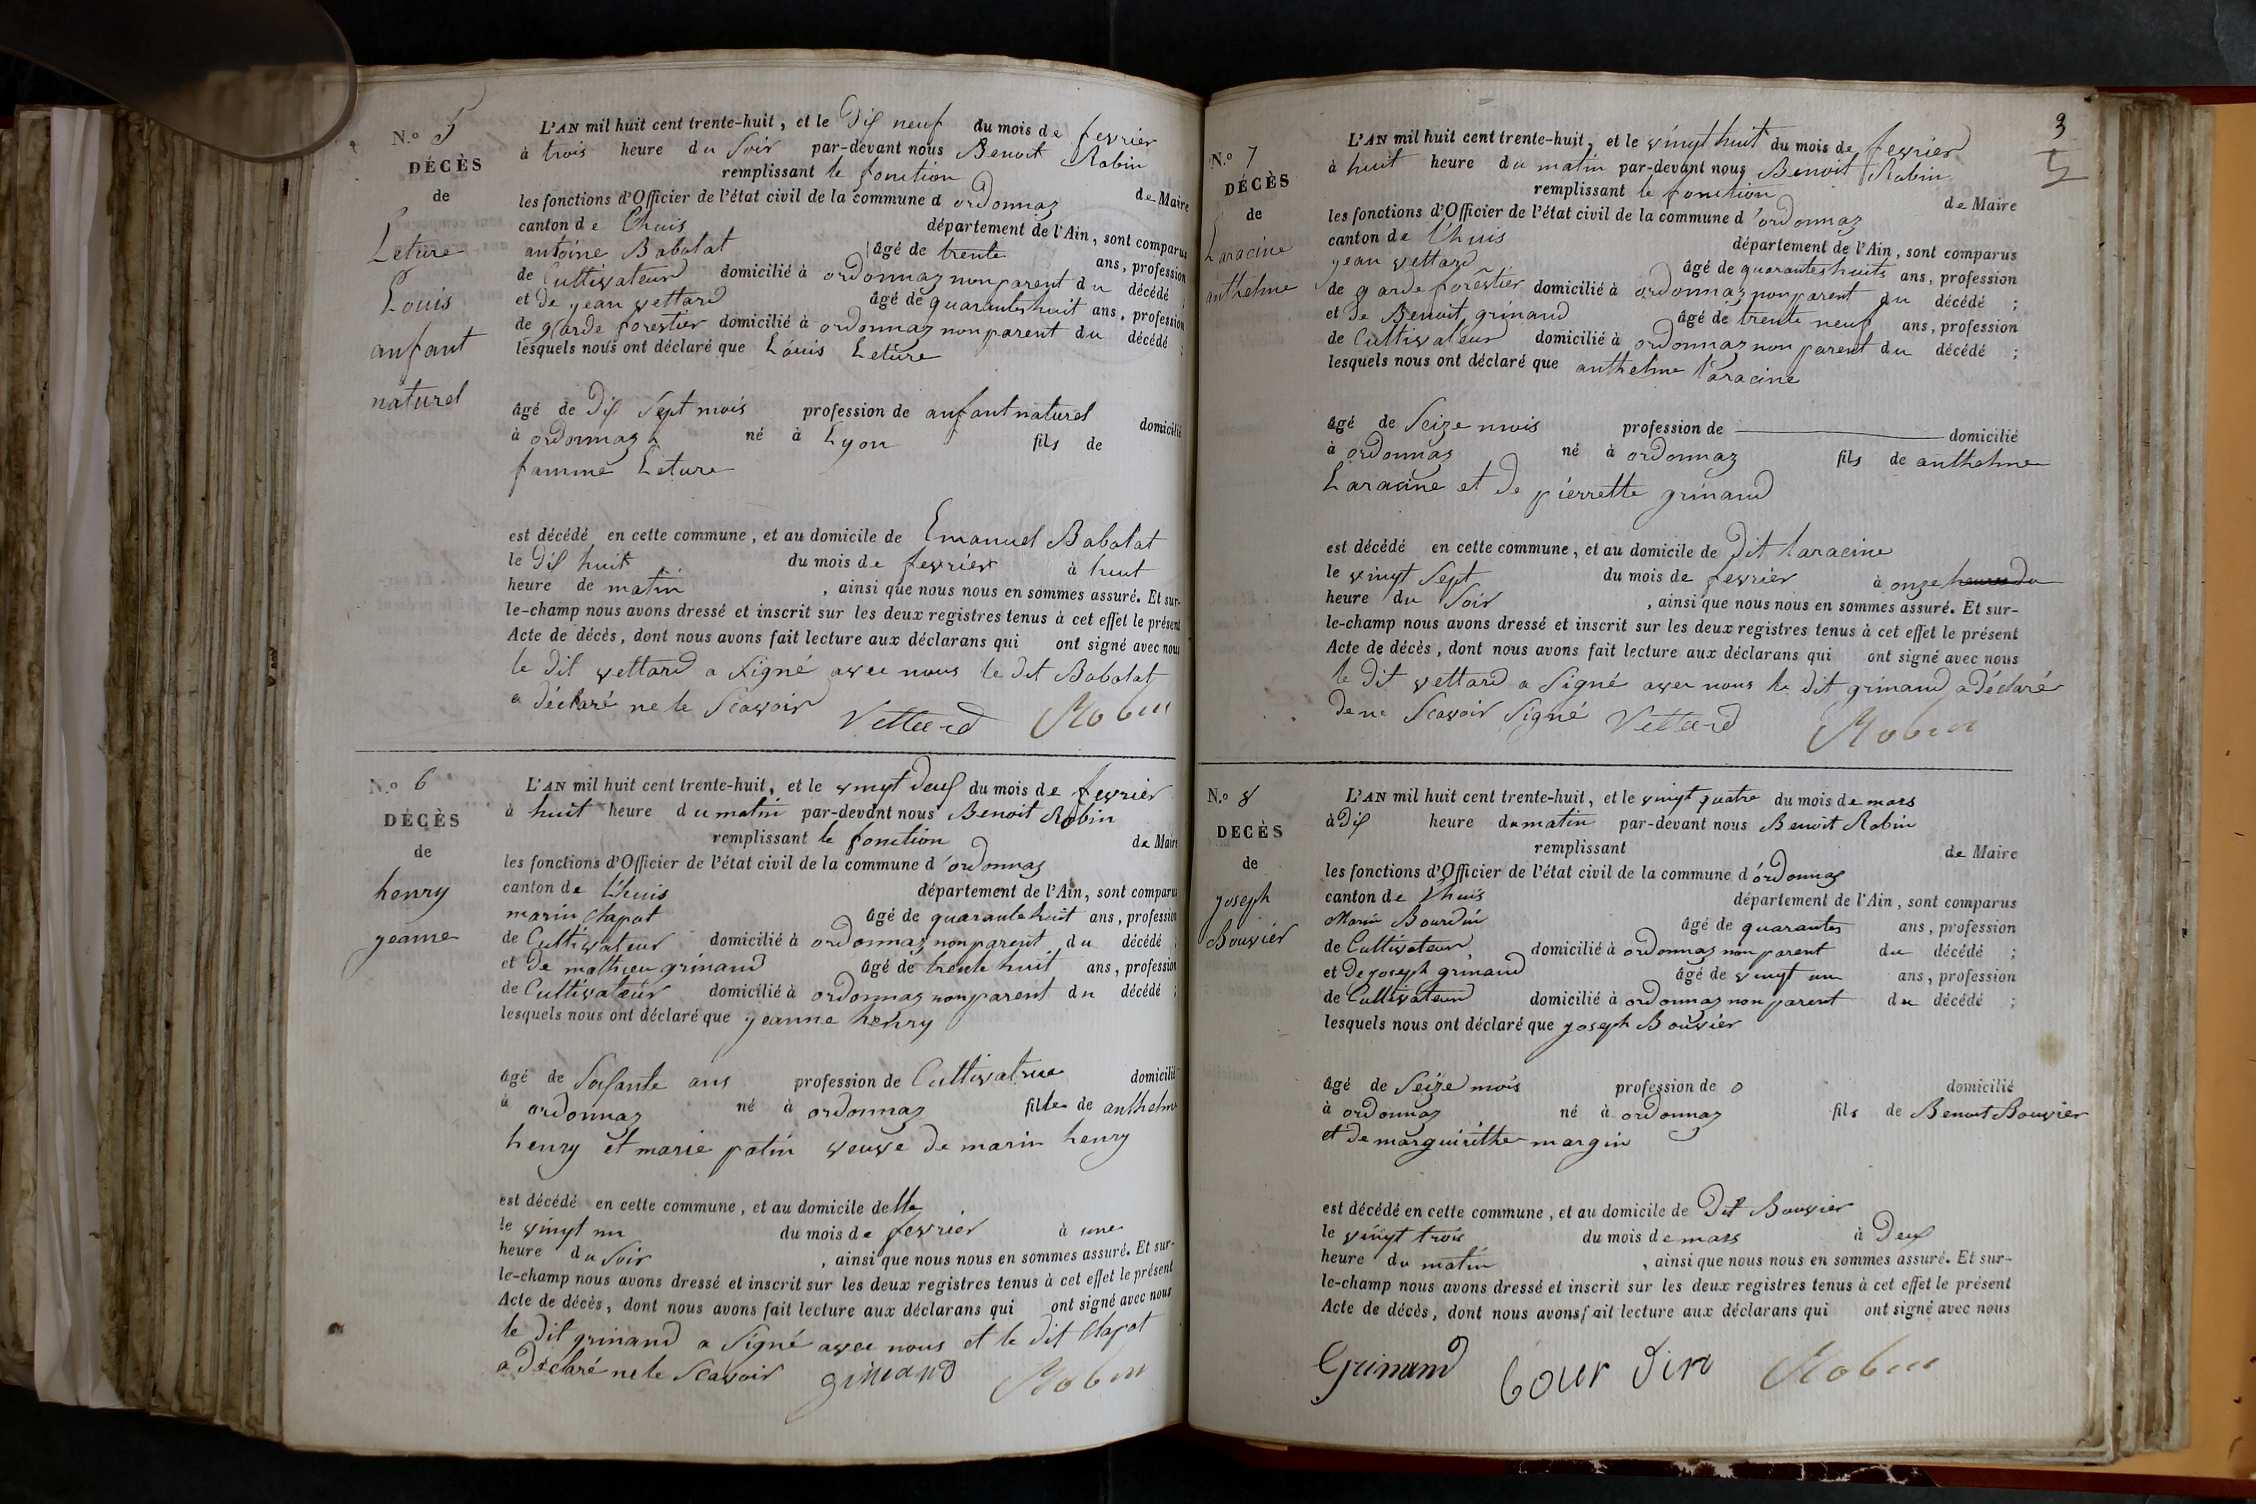 N.o 5
DÉCÈS
de
Leture
Louis
anfant
naturel
L'AN mil huit cent trente-huit, et le Dix neuf du mois de fevrier
à trois heure du Soir par-devant nous Benoit Robin
remplissant le fonction de Maire
les fonctions d'Officier de l'état civil de la commune d ordonnaz
canton de L'huis département de l'Ain, sont comparus
antoine Babolat âgé de trente ans, profession
de Cultivateur domicilié à ordonnaz non parent du décédé ;
et de jean vettard âgé de quarante huit ans, profession
de garde forestier domicilié à ordonnaz non parent du décédé ;
lesquels nous ont déclaré que Louis Leture
âgé de Dix Sept mois profession de anfant naturel domicilié
à ordonnaz né à Lyon fils de
famme Leture
est décédé en cette commune, et au domicile de Emanuel Babolat
le Dix huit du mois de fevrier à huit
heure de matin, ainsi que nous nous en sommes assuré. Et sur-
le-champ nous avons dressé et inscrit sur les deux registres tenus à cet effet le présent
Acte de décès, dont nous avons fait lecture aux déclarans qui ont signé avec nous
le dit vettard a Signé avec nous le dit Babolat
a déclaré ne le Scavoir Vettard Robin
N.o 6
DÉCÈS
de
henry
jeanne
L'AN mil huit cent trente-huit, et le vingt deux du mois de fevrier
à huit heure du matin par-devant nous Benoit Robin
remplissant le fonction de Maire
les fonctions d'Officier de l'état civil de la commune d'ordonnaz
canton de L'huis département de l'Ain, sont comparus
marin Clapot âgé de quarante huit ans, profession
de Cultivateur domicilié à ordonnaz non parent du décédé ;
et de mathieu grinand âgé de trente huit ans, profession
de Cultivateur domicilié à ordonnaz non parent du décédé ;
lesquels nous ont déclaré que jeanne henry
âgé de Soixante ans profession de Cultivatrice domicilié
à ordonnaz né à ordonnaz fille de anthelme
henry et marie patin veuve de marin henry
est décédé en cette commune, et au domicile de
le vingt un du mois de fevrier à une
heure du Soir, ainsi que nous nous en sommes assuré. Et sur-
le-champ nous avons dressé et inscrit sur les deux registres tenus à cet effet le présent
Acte de décès, dont nous avons fait lecture aux déclarans qui ont signé avec nous
le dit grinand a Signé avec nous et le dit Clapot
a déclaré ne le Scavoir ginand Robin
3
N.o 7
DÉCÈS
de
Laracine
anthelme
L'AN mil huit cent trente-huit, et le vingt huit du mois de fevrier
à huit heure du matin par-devant nous Benoit Robin
remplissant le fonction de Maire
les fonctions d'Officier de l'état civil de la commune d'ordonnaz
canton de L'huis département de l'Ain, sont comparus
jean vettard âgé de quarante huits ans, profession
de garde forêstier domicilié à ordonnaz non parent du décédé ;
et de Benoit grinand âgé de trente neuf ans, profession
de Cultivateur domicilié à ordonnaz non parent du décédé ;
lesquels nous ont déclaré que anthelme Laracine
âgé de Seize mois profession de domicilié
à ordonnaz né à ordonnaz fils de anthelme
Laracine et de pierrette grinand
est décédé en cette commune, et au domicile de dit Laracine
le vingt Sept du mois de fevrier à onze heures du
heure du Soir, ainsi que nous nous en sommes assuré. Et sur-
le-champ nous avons dressé et inscrit sur les deux registres tenus à cet effet le présent
Acte de décès, dont nous avons fait lecture aux déclarans qui ont signé avec nous
le dit vettard a Signé avec nous le dit grinand a déclaré
de ne Scavoir Signé Vettard Robin
N.o 8
DECÈS
de
joseph
Bouvier
L'AN mil huit cent trente-huit, et le vingt quatre du mois de mars
à Dix heure du matin par-devant nous Benoit Robin
remplissant de Maire
les fonctions d'Officier de l'état civil de la commune d'ordonnaz
canton de Lhuis département de l'Ain, sont comparus
Marin Bourdin âgé de quarantes ans, profession
de Cultivateur domicilié à ordonnaz non parent du décédé ;
et de joseph grinand âgé de vingt un ans, profession
de Cultivateur domicilié à ordonnaz non parent du décédé ;
lesquels nous ont déclaré que joseph Bouvier
âgé de Seize mois profession de o domicilié
à ordonnaz né à ordonnaz fils de Benoit Bouvier
et de marguirithe margin
est décédé en cette commune, et au domicile de Dit Bouvier
le vingt trois du mois de mars à Deux
heure du matin, ainsi que nous nous en sommes assuré. Et sur-
le-champ nous avons dressé et inscrit sur les deux registres tenus à cet effet le présent
Acte de décès, dont nous avons fait lecture aux déclarans qui ont signé avec nous
Grinand bourdin Robin